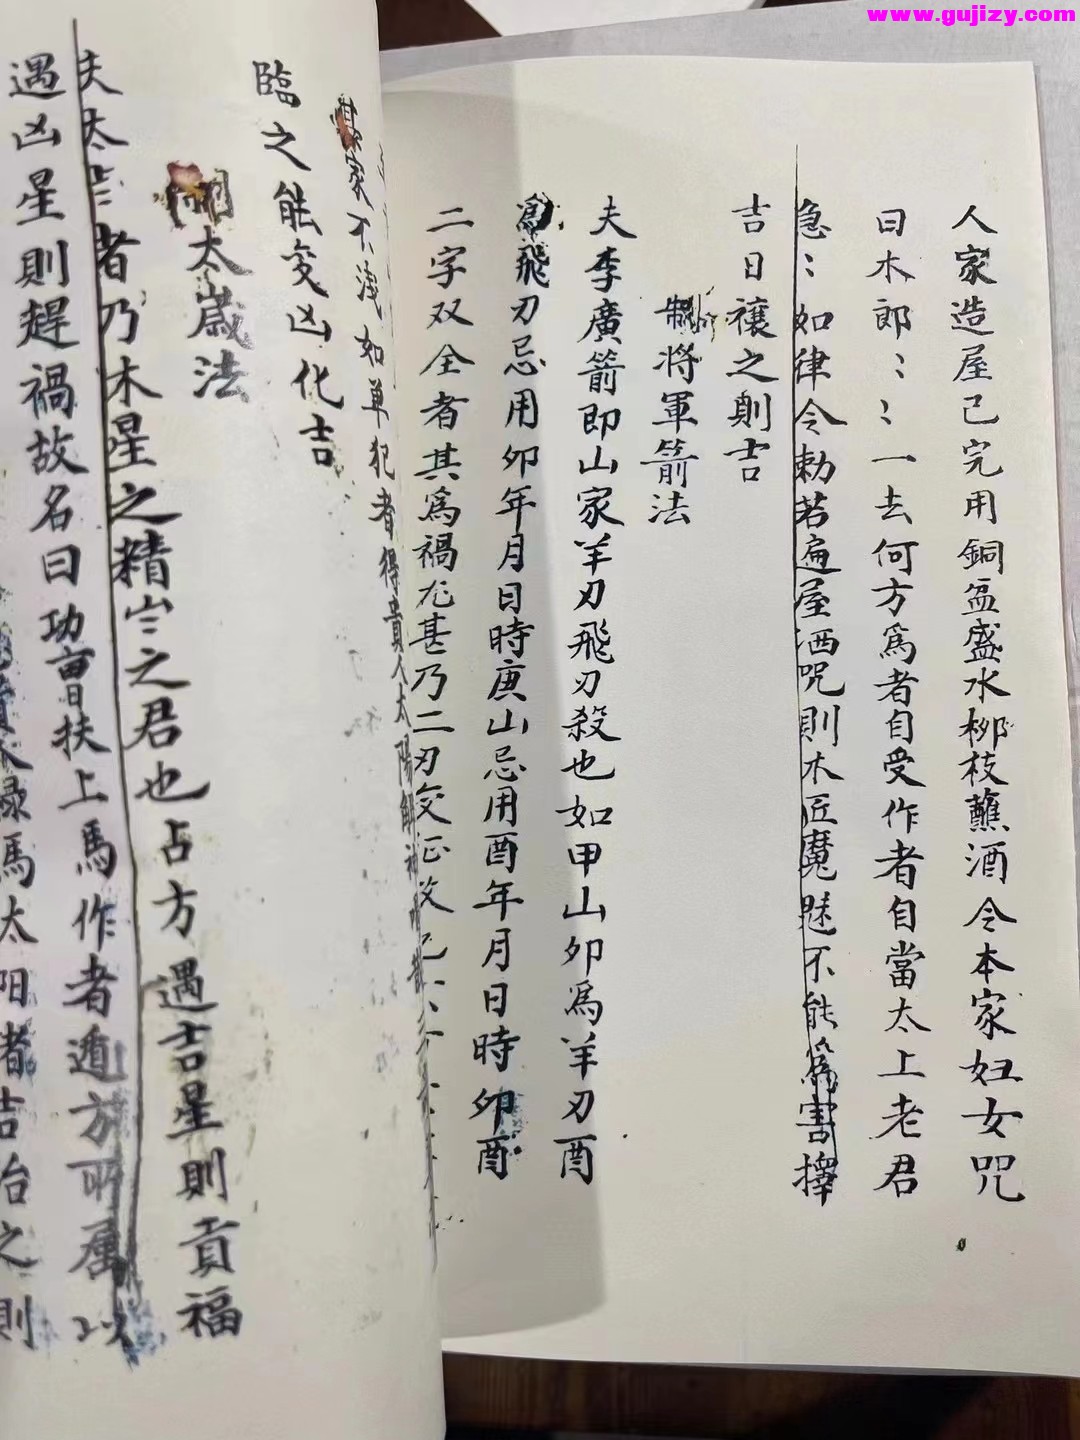 www.gujizy.com
人家造屋已完用銅盆盛水柳枝蘸洒令本家妇女咒
曰木郎〻〻一去何方為者自受作者自當太上老君
急〻如律令勅若遍屋洒咒則木匠魔魅不能為害擇
吉日禳之則吉
制將軍箭法
夫李廣箭即山家羊刃飛刃殺也如甲山卯為羊刃酉
為飛刃忌用卯年月日時庚山忌用酉年月日時卯酉
二字双全者其為禍尤甚乃二刃交
家不淺如单犯者得貴人太陽解神
臨之能变凶化吉
太歲法
夫太者乃木星之精之君也占方遇吉星則貢福
遇凶星則趕禍故名曰功曹扶上馬作者遁方所属以
祿馬太阳者吉治之則